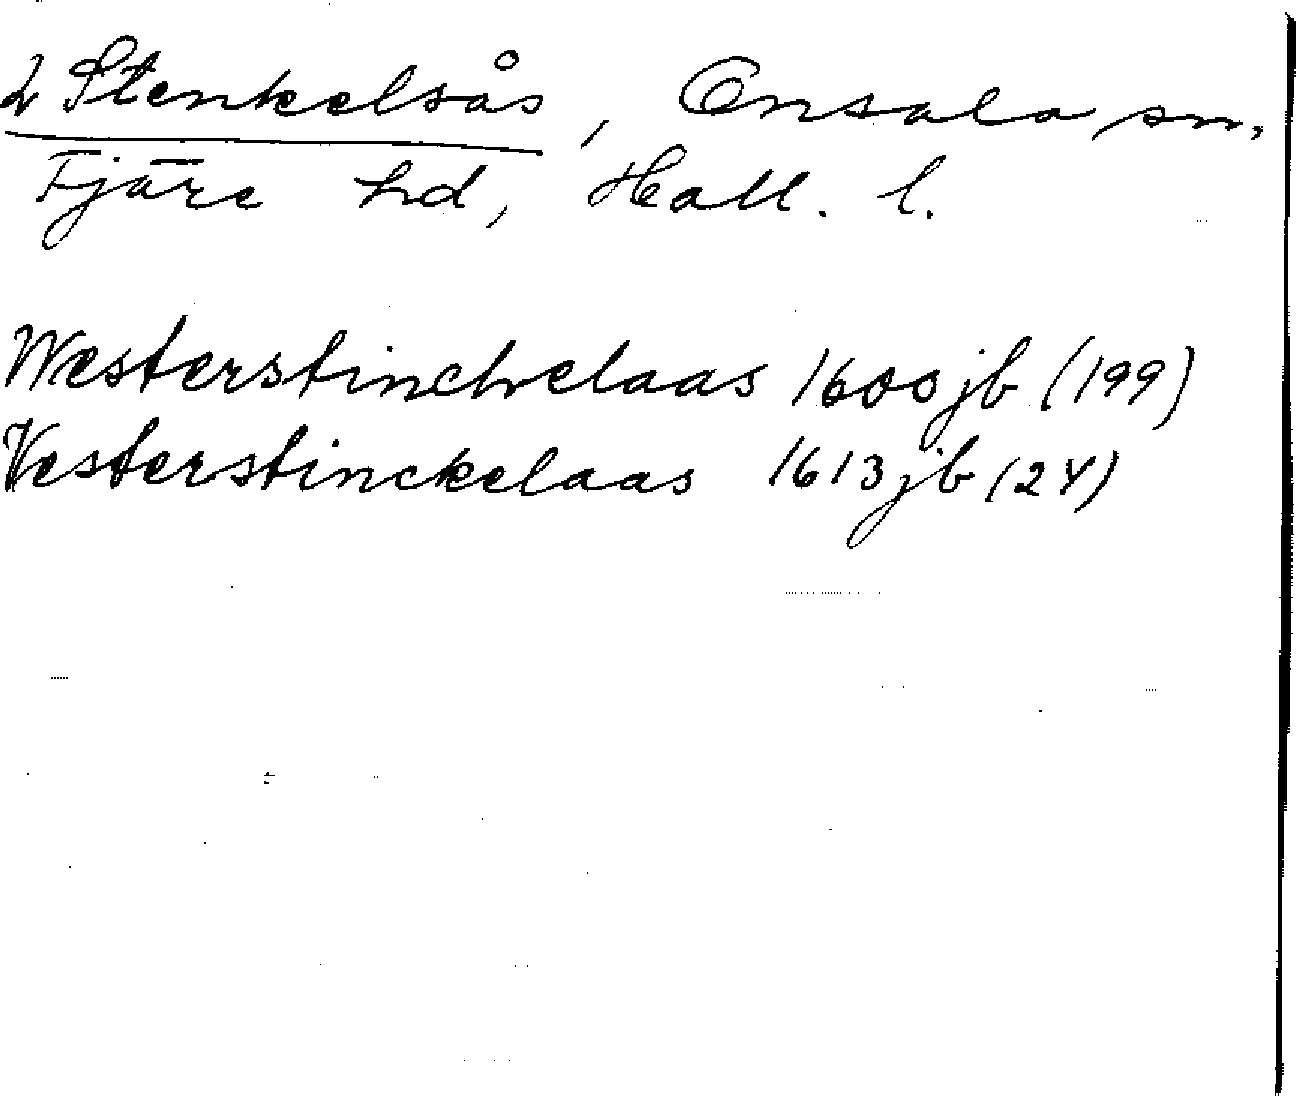 2 Stenkelsås, Onsala sn,
Fjäre hd, Hall. l.
Westerstinchelaas 1600 jb (199)
Vesterstinckelaas 1613 jb (24)